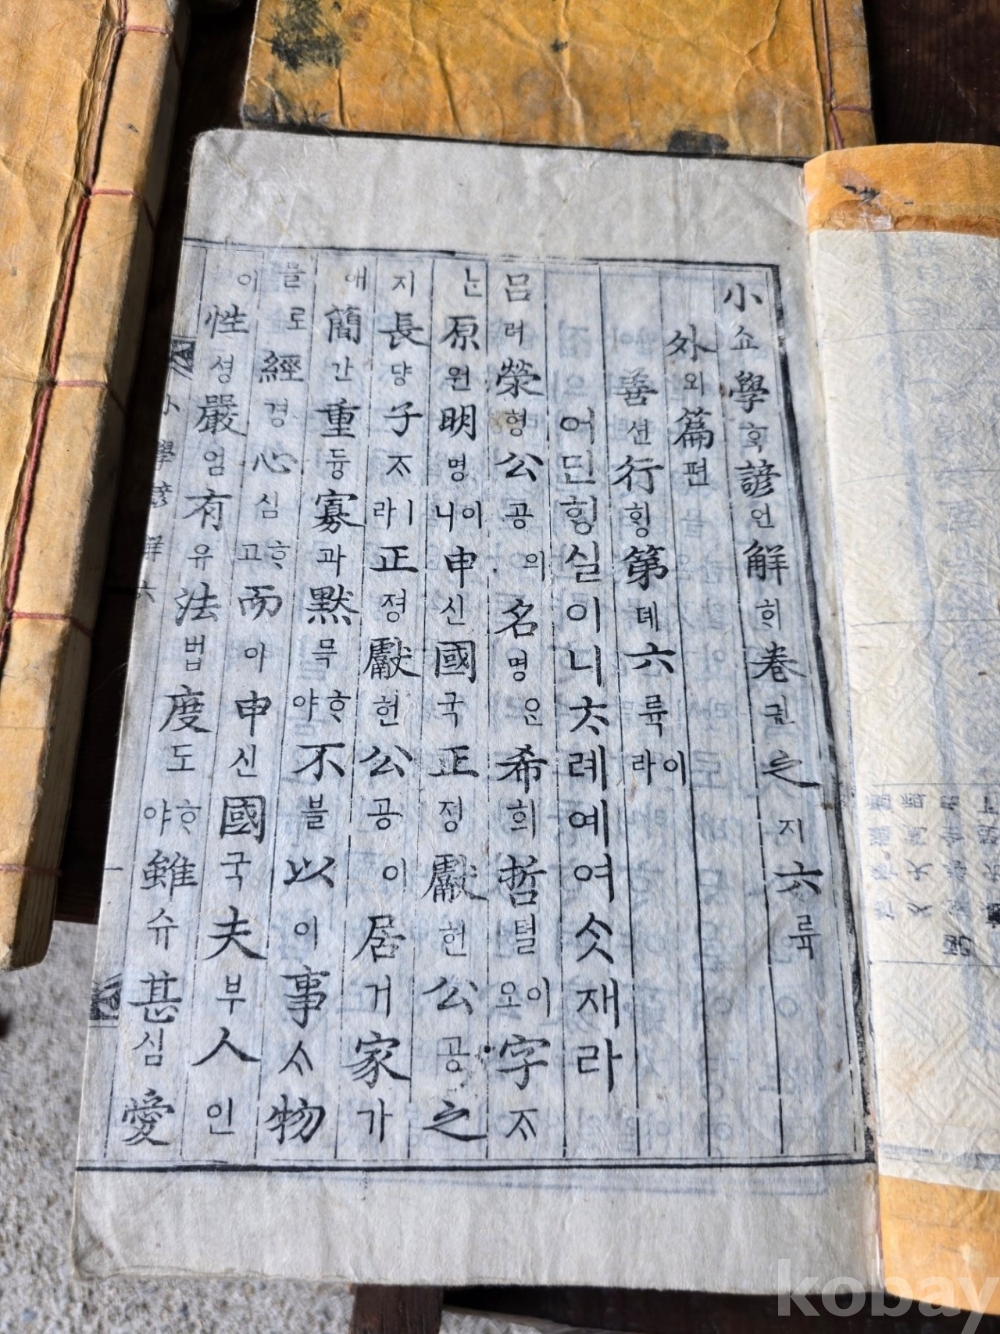 小쇼學ᄒᆞᆨ諺언解ᄒᆡ卷권之지六륙
外외篇편
善션行ᄒᆡᆼ第뎨六륙이라
어딘ᄒᆡᆼ실이니ᄎᆞ례예여ᄉᆞᆺ재라
呂려滎형公공의名명은希희哲텰이오字ᄌᆞ
ᄂᆞᆫ原원明명이니申신國국正졍獻헌公공之
지長댱子ᄌᆞㅣ라正졍獻헌公공이居거家가
애簡간重듕寡과黙믁ᄒᆞ야不블以이事ᄉᆞ物
믈로經경心심ᄒᆞ고而이申신國국夫부人인
이性셩嚴엄有유法법度도ᄒᆞ야雖슈甚심愛
小學諺解 六
kobay